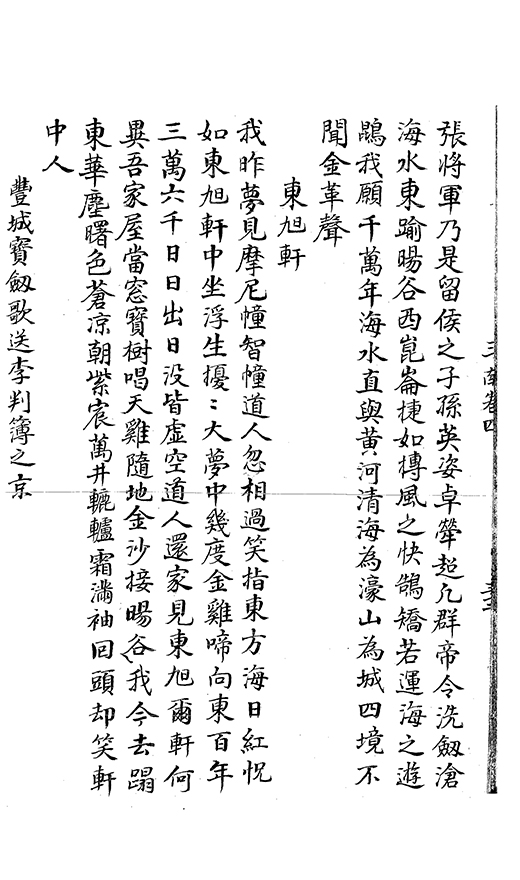 張將軍乃是留侯之子孫英姿卓犖超凡群帝令洗劔滄
海水東踰暘谷西崑崙捷如摶風之快鶻矯若運海之遊
鵾我願千萬年海水直與黃河清海為濠山為城四境不
聞金革聲
東旭軒
我昨夢見摩尼幢智幢道人忽相過笑指東方海日紅怳
如東旭軒中坐浮生擾〻大夢中幾度金雞啼向東百年
三萬六千日日出日没皆虛空道人還家見東旭爾軒何
異吾家屋當窓寶樹唱天雞隨地金沙接暘谷我今去蹋
東華塵曙色蒼凉朝紫宸萬井轆轤霜滿袖回頭却笑軒
中人
豐城寳劔歌送李判簿之京